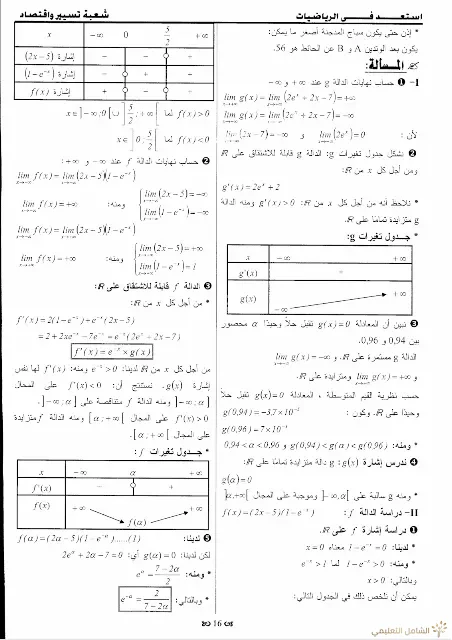 استعد فـي الرياضيات
شعبة تسيير واقتصاد
• إذن حتى يكون سياج المدجنة أصغر ما يمكن:
يكون بعد الوتدين A و B عن الحائط هو 56.
المسألة:
I- ❶ حساب نهايات الدالة g عند ∞+ و ∞-
lim g(x) = lim (2eˣ + 2x - 7) = +∞
x→+∞ x→+∞
lim g(x) = lim (2eˣ + 2x - 7) = -∞
x→-∞ x→-∞
لأن: lim (2eˣ) = 0 و lim (2x - 7) = -∞
x→-∞ x→-∞
❷ نشكل جدول تغيرات g: الدالة g قابلة للاشتقاق على ℝ
ومن أجل كل x من ℝ:
g'(x) = 2eˣ + 2
• نلاحظ أنه من أجل كل x من ℝ: g'(x) > 0 ومنه الدالة
g متزايدة تماما على ℝ.
• جـدول تغيرات g:
x -∞ +∞
g'(x) +
g(x) -∞ +∞
❸ نبين أن المعادلة g(x) = 0 تقبل حلا وحيدا α محصور
بين 0,94 و 0,96.
الدالة g مستمرة على ℝ. و lim g(x) = -∞
x→-∞
و lim g(x) = +∞ ومتزايدة على ℝ.
x→+∞
حسب نظرية القيم المتوسطة، المعادلة g(x) = 0 تقبل حلا
وحيدا على ℝ. وكون: g(0,94) = -3,7×10⁻³
g(0,96) = 7×10⁻²
• ومنه: g(0,94) < g(α) < g(0,96) و 0,94 < α < 0,96
❹ ندرس إشارة g(x): g دالة متزايدة تماما على ℝ.
g(α) = 0
• ومنه g سالبة على ]-∞; α] وموجبة على المجال [α; +∞[
II- دراسة الدالة f: f(x) = (2x - 5)(1 - e⁻ˣ)
❶ دراسة إشارة f على ℝ.
• لدينا: 1 - e⁻ˣ = 0 معناه x = 0
• لدينا: 1 - e⁻ˣ > 0 لما eˣ > 1
وبالتالي: x > 0
يمكن أن نلخص ذلك في الجدول التالي:
x -∞ 0 5/2 +∞
إشارة (2x - 5) - - +
إشارة (1 - e⁻ˣ) - + +
إشارة f(x) + - +
f(x) > 0 لما x ∈ ]-∞; 0[ ∪ ]5/2; +∞[
f(x) < 0 لما x ∈ ]0; 5/2[
❷ حساب نهايات الدالة f عند ∞- و ∞+:
lim f(x) = lim (2x - 5)(1 - e⁻ˣ)
x→-∞ x→-∞
lim (2x - 5) = -∞
lim (1 - e⁻ˣ) = -∞
ومنه: lim f(x) = +∞
lim f(x) = lim (2x - 5)(1 - e⁻ˣ)
x→+∞ x→+∞
lim (2x - 5) = +∞
lim (1 - e⁻ˣ) = 1
ومنه: lim f(x) = +∞
❸ الدالة f قابلة للاشتقاق على ℝ:
• من أجل كل x من ℝ:
f'(x) = 2(1 - e⁻ˣ) + e⁻ˣ(2x - 5)
= 2 + 2xe⁻ˣ - 7e⁻ˣ = e⁻ˣ(2eˣ + 2x - 7)
f'(x) = e⁻ˣ × g(x)
من أجل كل x من ℝ لدينا: e⁻ˣ > 0 ومنه: f'(x) لها نفس
إشارة g(x). نستنتج أن: f'(x) < 0 على المجال
]-∞; α] ومنه الدالة f متناقصة على ]-∞; α].
f'(x) > 0 على المجال [α; +∞[ ومنه الدالة f متزايدة
على المجال [α; +∞[.
• جـدول تغيرات f:
x -∞ α +∞
f'(x) - +
f(x) +∞ f(α) +∞
❺ لدينا: f(α) = (2α - 5)(1 - e⁻ᵅ).....(1)
لكن لدينا: g(α) = 0 أي: 2eᵅ + 2α - 7 = 0
• ومنه: eᵅ = (7 - 2α)/2
• وبالتالي: e⁻ᵅ = 2/(7 - 2α)
16
الشامل التعليمي